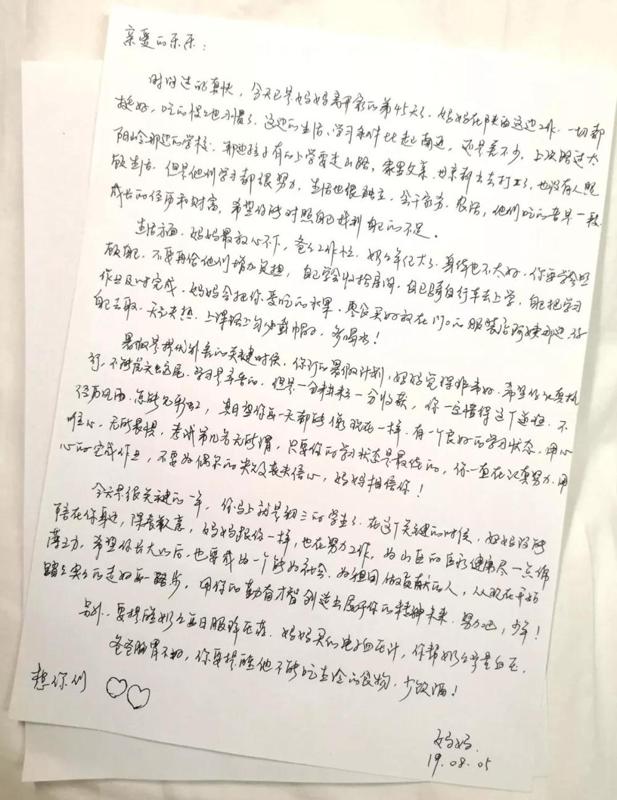 亲爱的乐乐：
时间过的真快，今天已是妈妈离开家的第45天了，妈妈在陕西这边工作，一切都
挺好，吃的慢慢也习惯了，这边的生活、学习条件比起南通，还是差不少，上次路过大
阳岭那边的学校，那边孩子有的上学要走山路，家里父亲、母亲都出去打工了，也没有人照
顾生活，但是他们学习都很努力，生活也很独立，会干家务、农活，他们吃的苦是一种
成长的经历和财富，希望你能对照自己找到自己的不足。
生活方面，妈妈最放心不下，爸爸工作忙，奶奶年纪大了，身体也不太好，你要学会照
顾自己，不要再给他们增加负担，自己学会收拾房间，自己骑自行车去上学，自己把学习
作业及时完成，妈妈会把你爱吃的水果、零食买好放在门口的服装店阿姨那边，你
自己去取，天气炎热，上课路上勿忘戴帽子，多喝水！
暑假是提优补差的关键时候，你订的暑假计划，妈妈觉得非常好，希望你认真执
行，不能虎头蛇尾，学习是辛苦的，但是一分耕耘一分收获，你一定懂得这个道理，不
经历风雨，怎能见彩虹，期望你每一天都能像现在一样，有一个良好的学习状态，用心
，无所畏惧，考试第几名无所谓，只要你的学习状态是最佳的，你一直在认真努力，用
心的完成作业，不要为偶尔的失误丧失信心，妈妈相信你！
今年是很关键的一年，你马上就是初三的学生了，在这个关键的时候，妈妈没能
陪在你身边，深表歉意，妈妈跟你一样，也在努力工作，为山区的医疗健康尽一点绵
薄之力，希望你长大以后，也要成为一个能为社会、为祖国做贡献的人，从现在开始
踏踏实实的走好每一步，用你的勤奋才智创造出属于你的精彩未来，努力吧，少年！
另外，要提醒奶奶每日服降压药，妈妈买的电子血压计，你帮奶奶量血压，
爸爸肠胃不好，你要提醒他不能吃生冷的食物，少饮酒！
想你们
妈妈
19.08.05